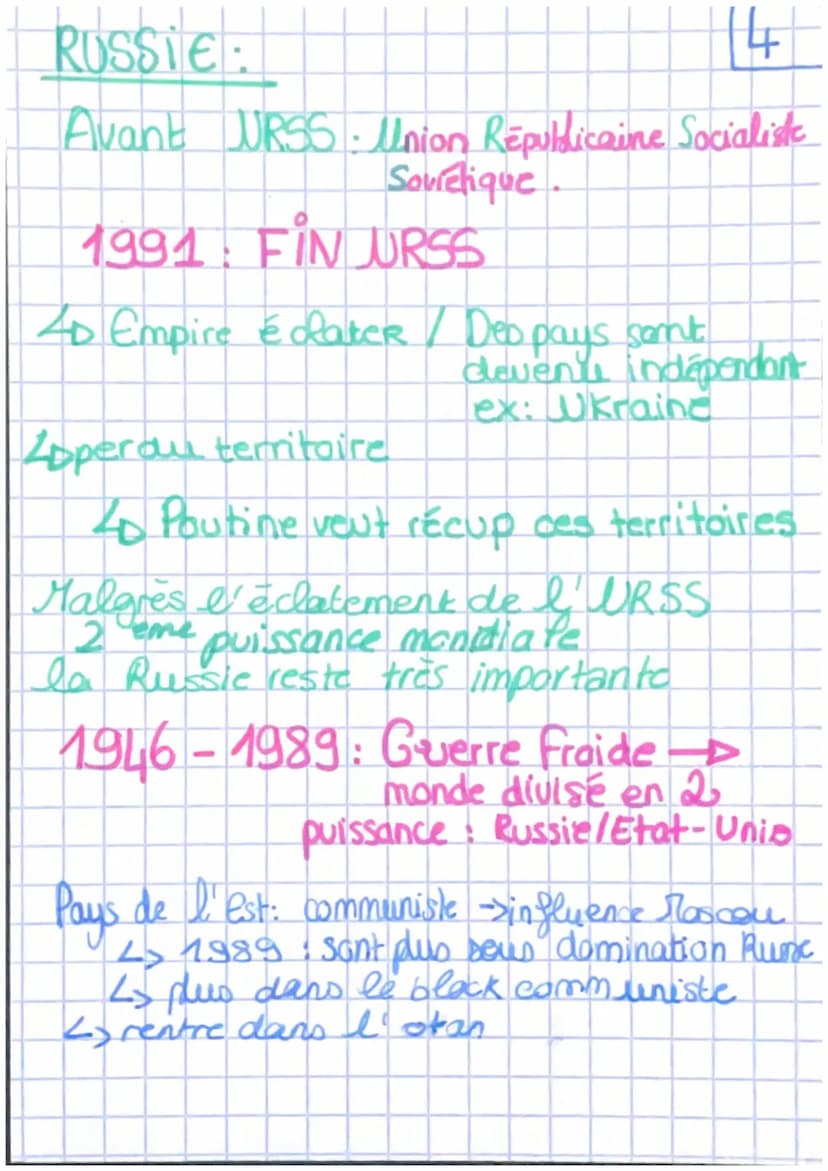 RUSSIE :
4
Avant URSS : Union Républicaine Socialiste
Soviétique .
1991 : FIN URSS
↳ Empire éclater / Des pays sont
devenu indépendant
ex: Ukraine
↳ perdu territoire
↳ Poutine veut récup ces territoires
Malgrès l'éclatement de l'URSS
2 ème puissance mondiale
la Russie reste très importante
1946 - 1989 : Guerre froide →
monde divisé en 2
puissance : Russie/Etat-Unis
Pays de l'Est: communiste → influence Moscou
↳ 1989 : sont plus sous domination Russe
↳ plus dans le block communiste
↳ rentre dans l'otan